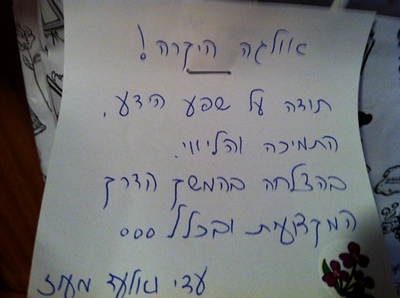 אולגה היקרה!
תודה על שפע הידע,
התמיכה והליווי.
בהצלחה בהמשך הדרך
המקצועית ובכלל...
עדי ואלעד מעוז